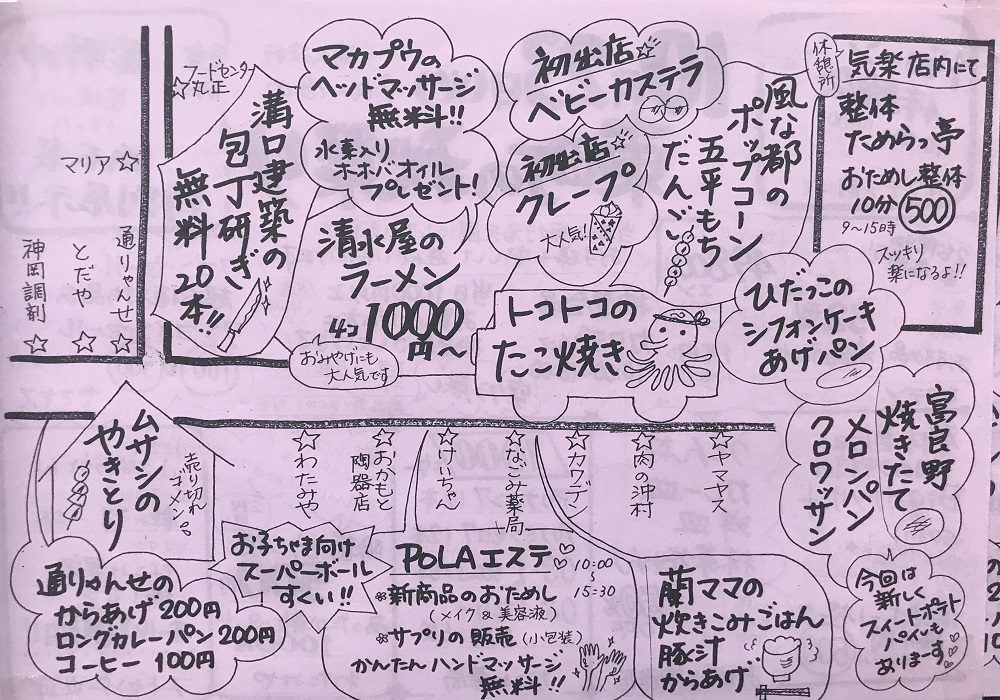 フードセンター
☆丸正
マリア☆
通りゃんせ☆
とだや☆
神岡調剤☆
溝口建築の
包丁研ぎ
無料20本!!
マカプウの
ヘッドマッサージ
無料!!
水素入り
ホホバオイル
プレゼント!
清水屋の
ラーメン
4コ1000円~
おみやげにも
大人気です
初出店☆
ベビーカステラ
初出店☆
クレープ
大人気!
風な都の
ポップコーン
五平もち
だんご
トコトコの
たこ焼き
休憩所
気楽店内にて
整体
ためらっ亭
おためし整体
10分500
9~15時
スッキリ
楽になるよ!!
ひだっこの
シフォンケーキ
あげパン
富良野
焼きたて
メロンパン
クロワッサン
今回は
新しく
スイートポテト
パイも
あります♡
ムサシの
やきとり
売り切れ
ゴメン。
☆わたみや
☆おかもと
陶器店
☆けいちゃん
☆なごみ薬局
☆カワデン
☆肉の沖村
☆ヤマヤス
通りゃんせの
からあげ200円
ロングカレーパン200円
コーヒー100円
お子ちゃま向け
スーパーボール
すくい!!
POLAエステ♡
10:00
~
15:30
※新商品のおためし
(メイク&美容液)
※サプリの販売(小包装)
かんたんハンドマッサージ
無料!!
蘭ママの
炊きこみごはん
豚汁
からあげ